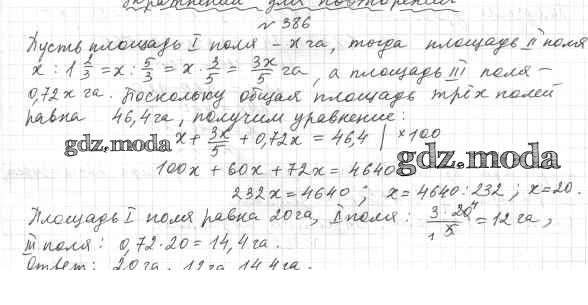 Упражнения для повторения
№ 386
Пусть площадь I поля – x га, тогда площадь II поля
x : 1 2/3 = x : 5/3 = x · 3/5 = 3x/5 га, а площадь III поля –
0,72x га. Поскольку общая площадь трёх полей
равна 46,4 га, получим уравнение:
x + 3x/5 + 0,72x = 46,4 | ×100
gdz.moda
gdz.moda
100x + 60x + 72x = 4640
232x = 4640 ; x = 4640 : 232 ; x = 20.
Площадь I поля равна 20 га, II поля : 3 · 20 4 / 1 5 = 12 га ,
III поля : 0,72 · 20 = 14,4 га .
Ответ : 20 га, 12 га, 14,4 га.